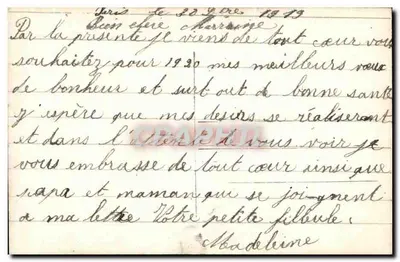 Paris le 30 Xbre 1919
Bien chère Marraine
Par la presente je viens de tout cœur vous
souhaitez pour 1920 mes meilleurs vœux
de bonheur et surtout de bonne santé
j'espère que mes desirs se réaliseront
et dans l' à vous voir je
vous embrasse de tout cœur ainsi que
papa et maman qui se joignent
a ma lettre Votre petite filleule.
Madeleine